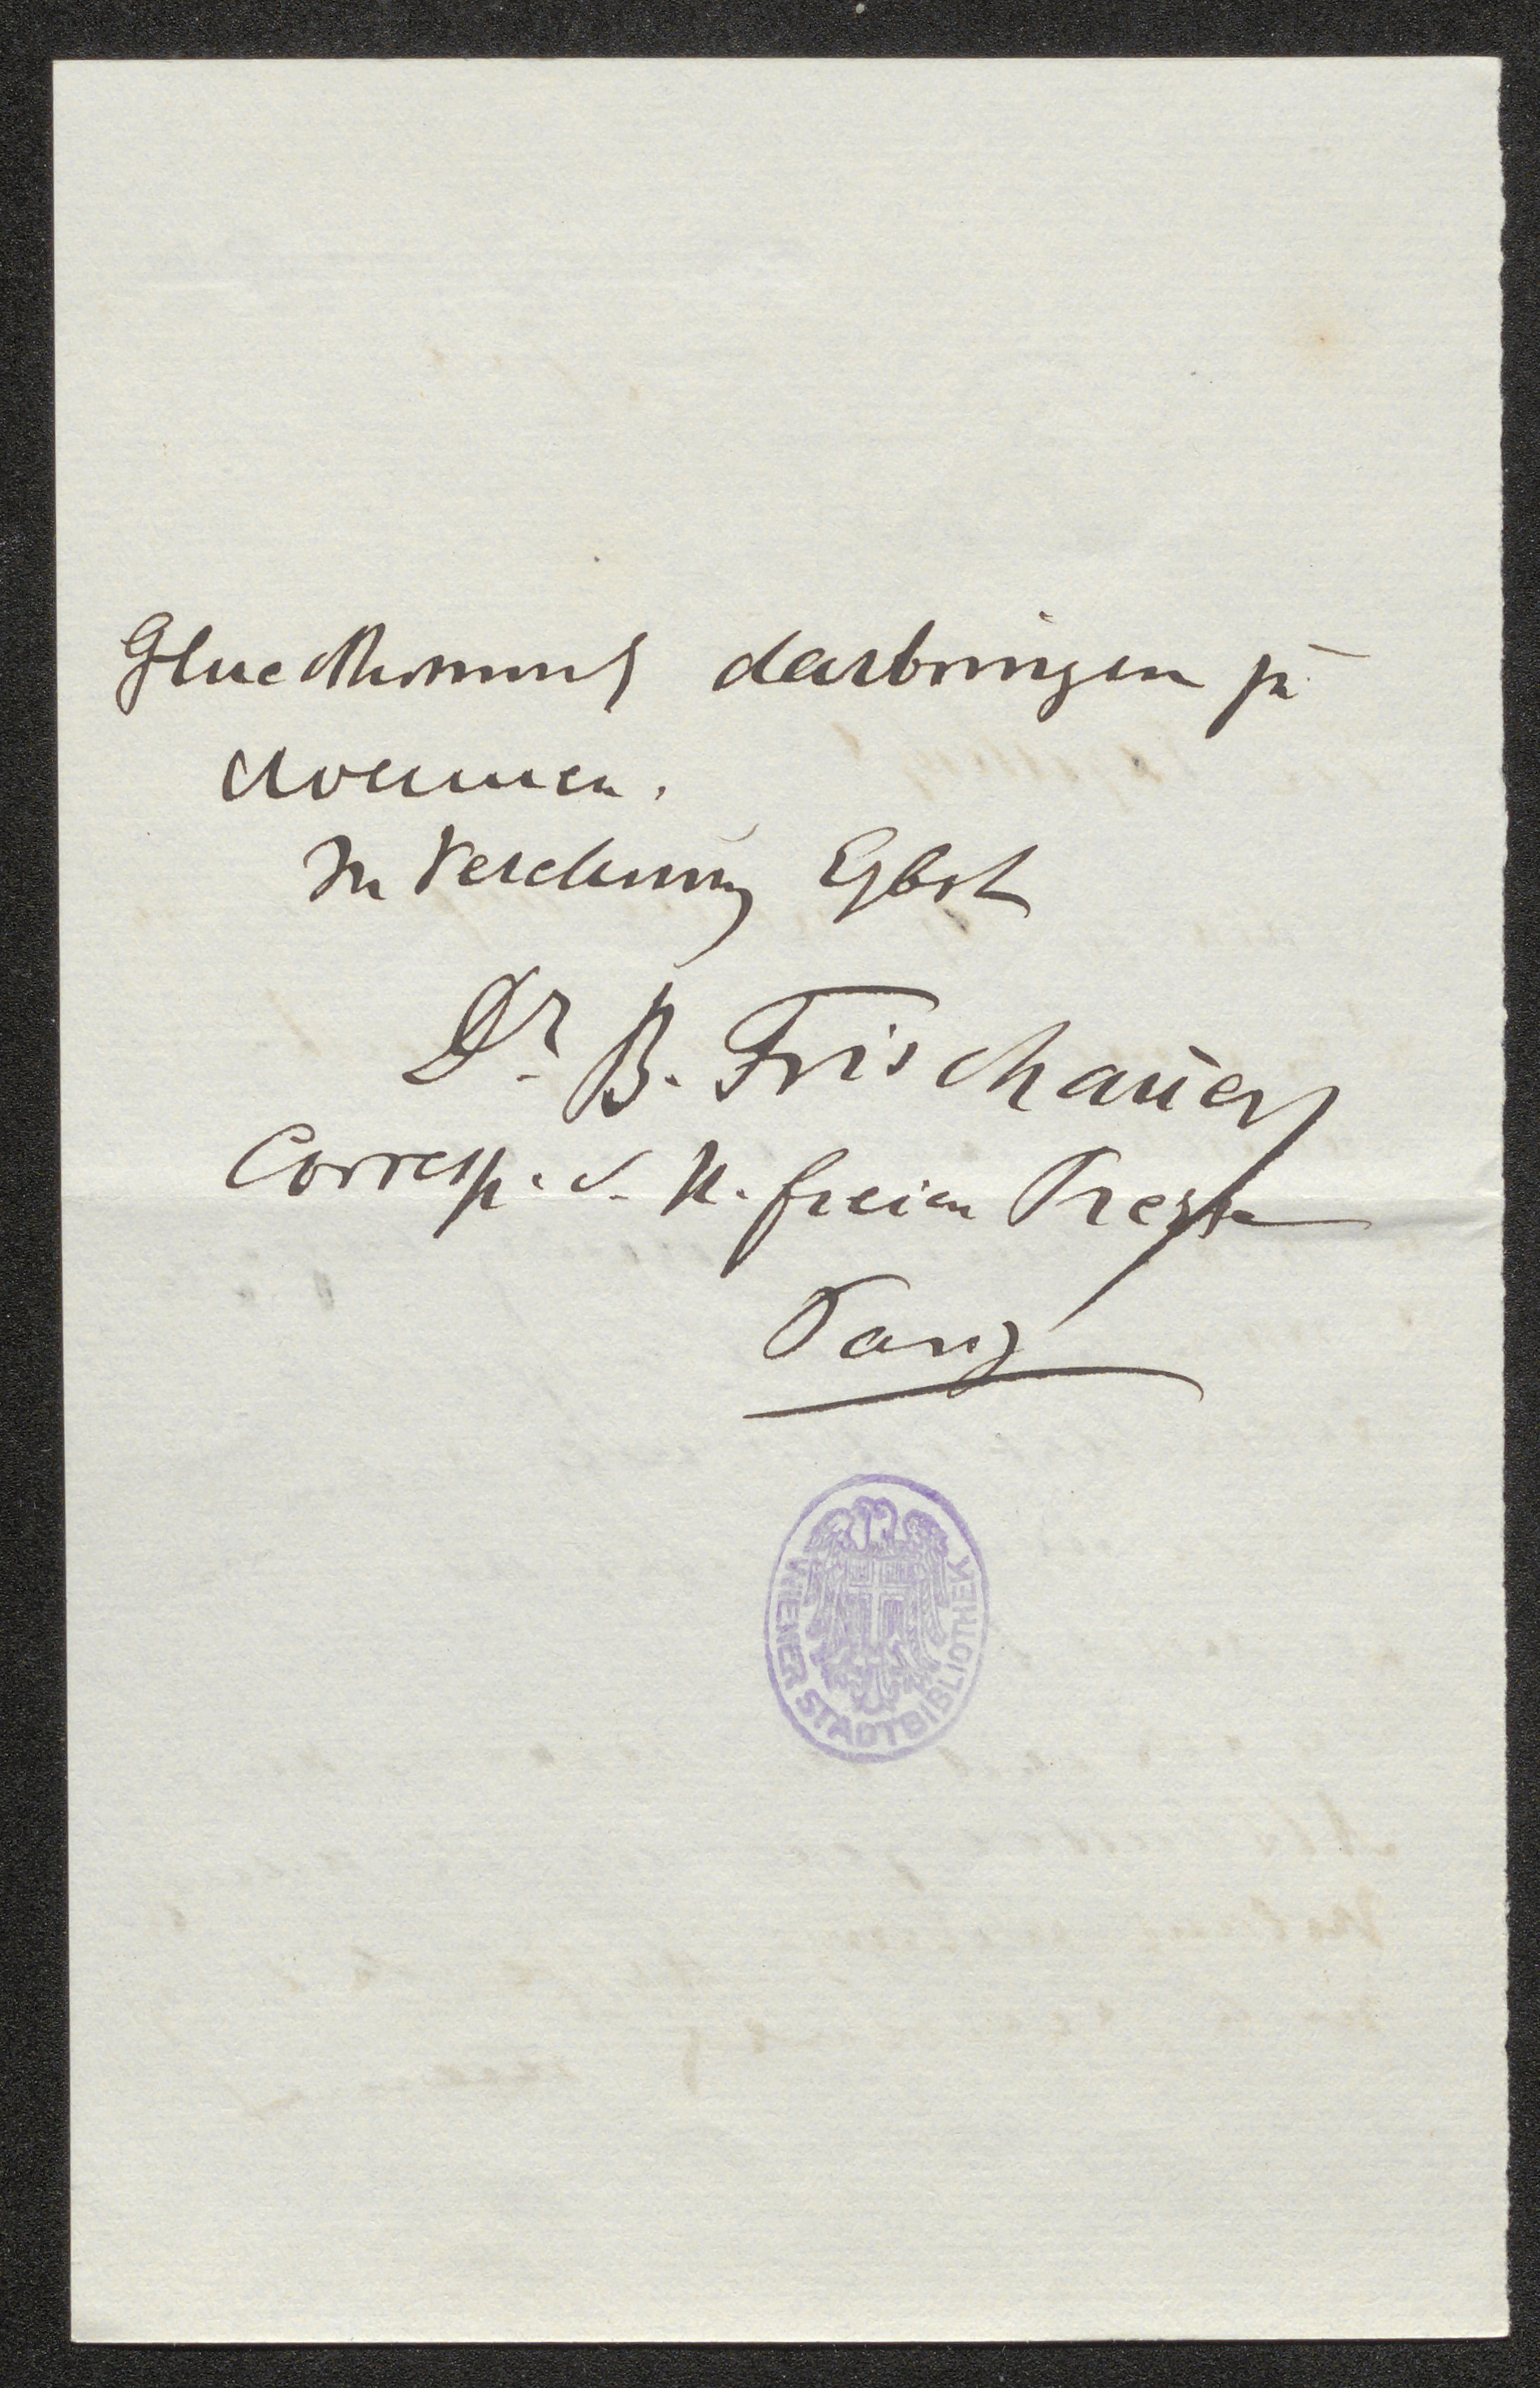 Glueckwunsch darbringen zu
koennen.
In Verehrung Ergbst
Dr B. Frischauer
Corresp. d. N. freien Presse
Paris
WIENER STADTBIBLIOTHEK